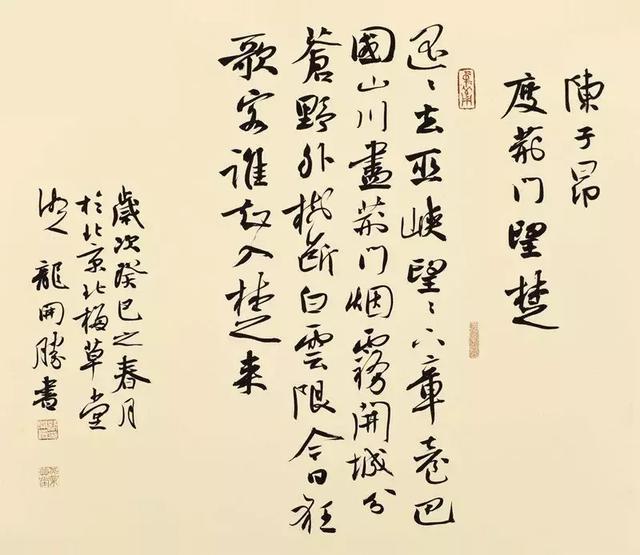 陳子昂
度荊门望楚
遥々去巫峡望々下章臺巴
國山川盡荊门烟霧開城分
蒼野外樹断白雲隈今日狂
歌客誰知入楚来
歲次癸巳之春月
於北京北梅草堂
龍開勝書